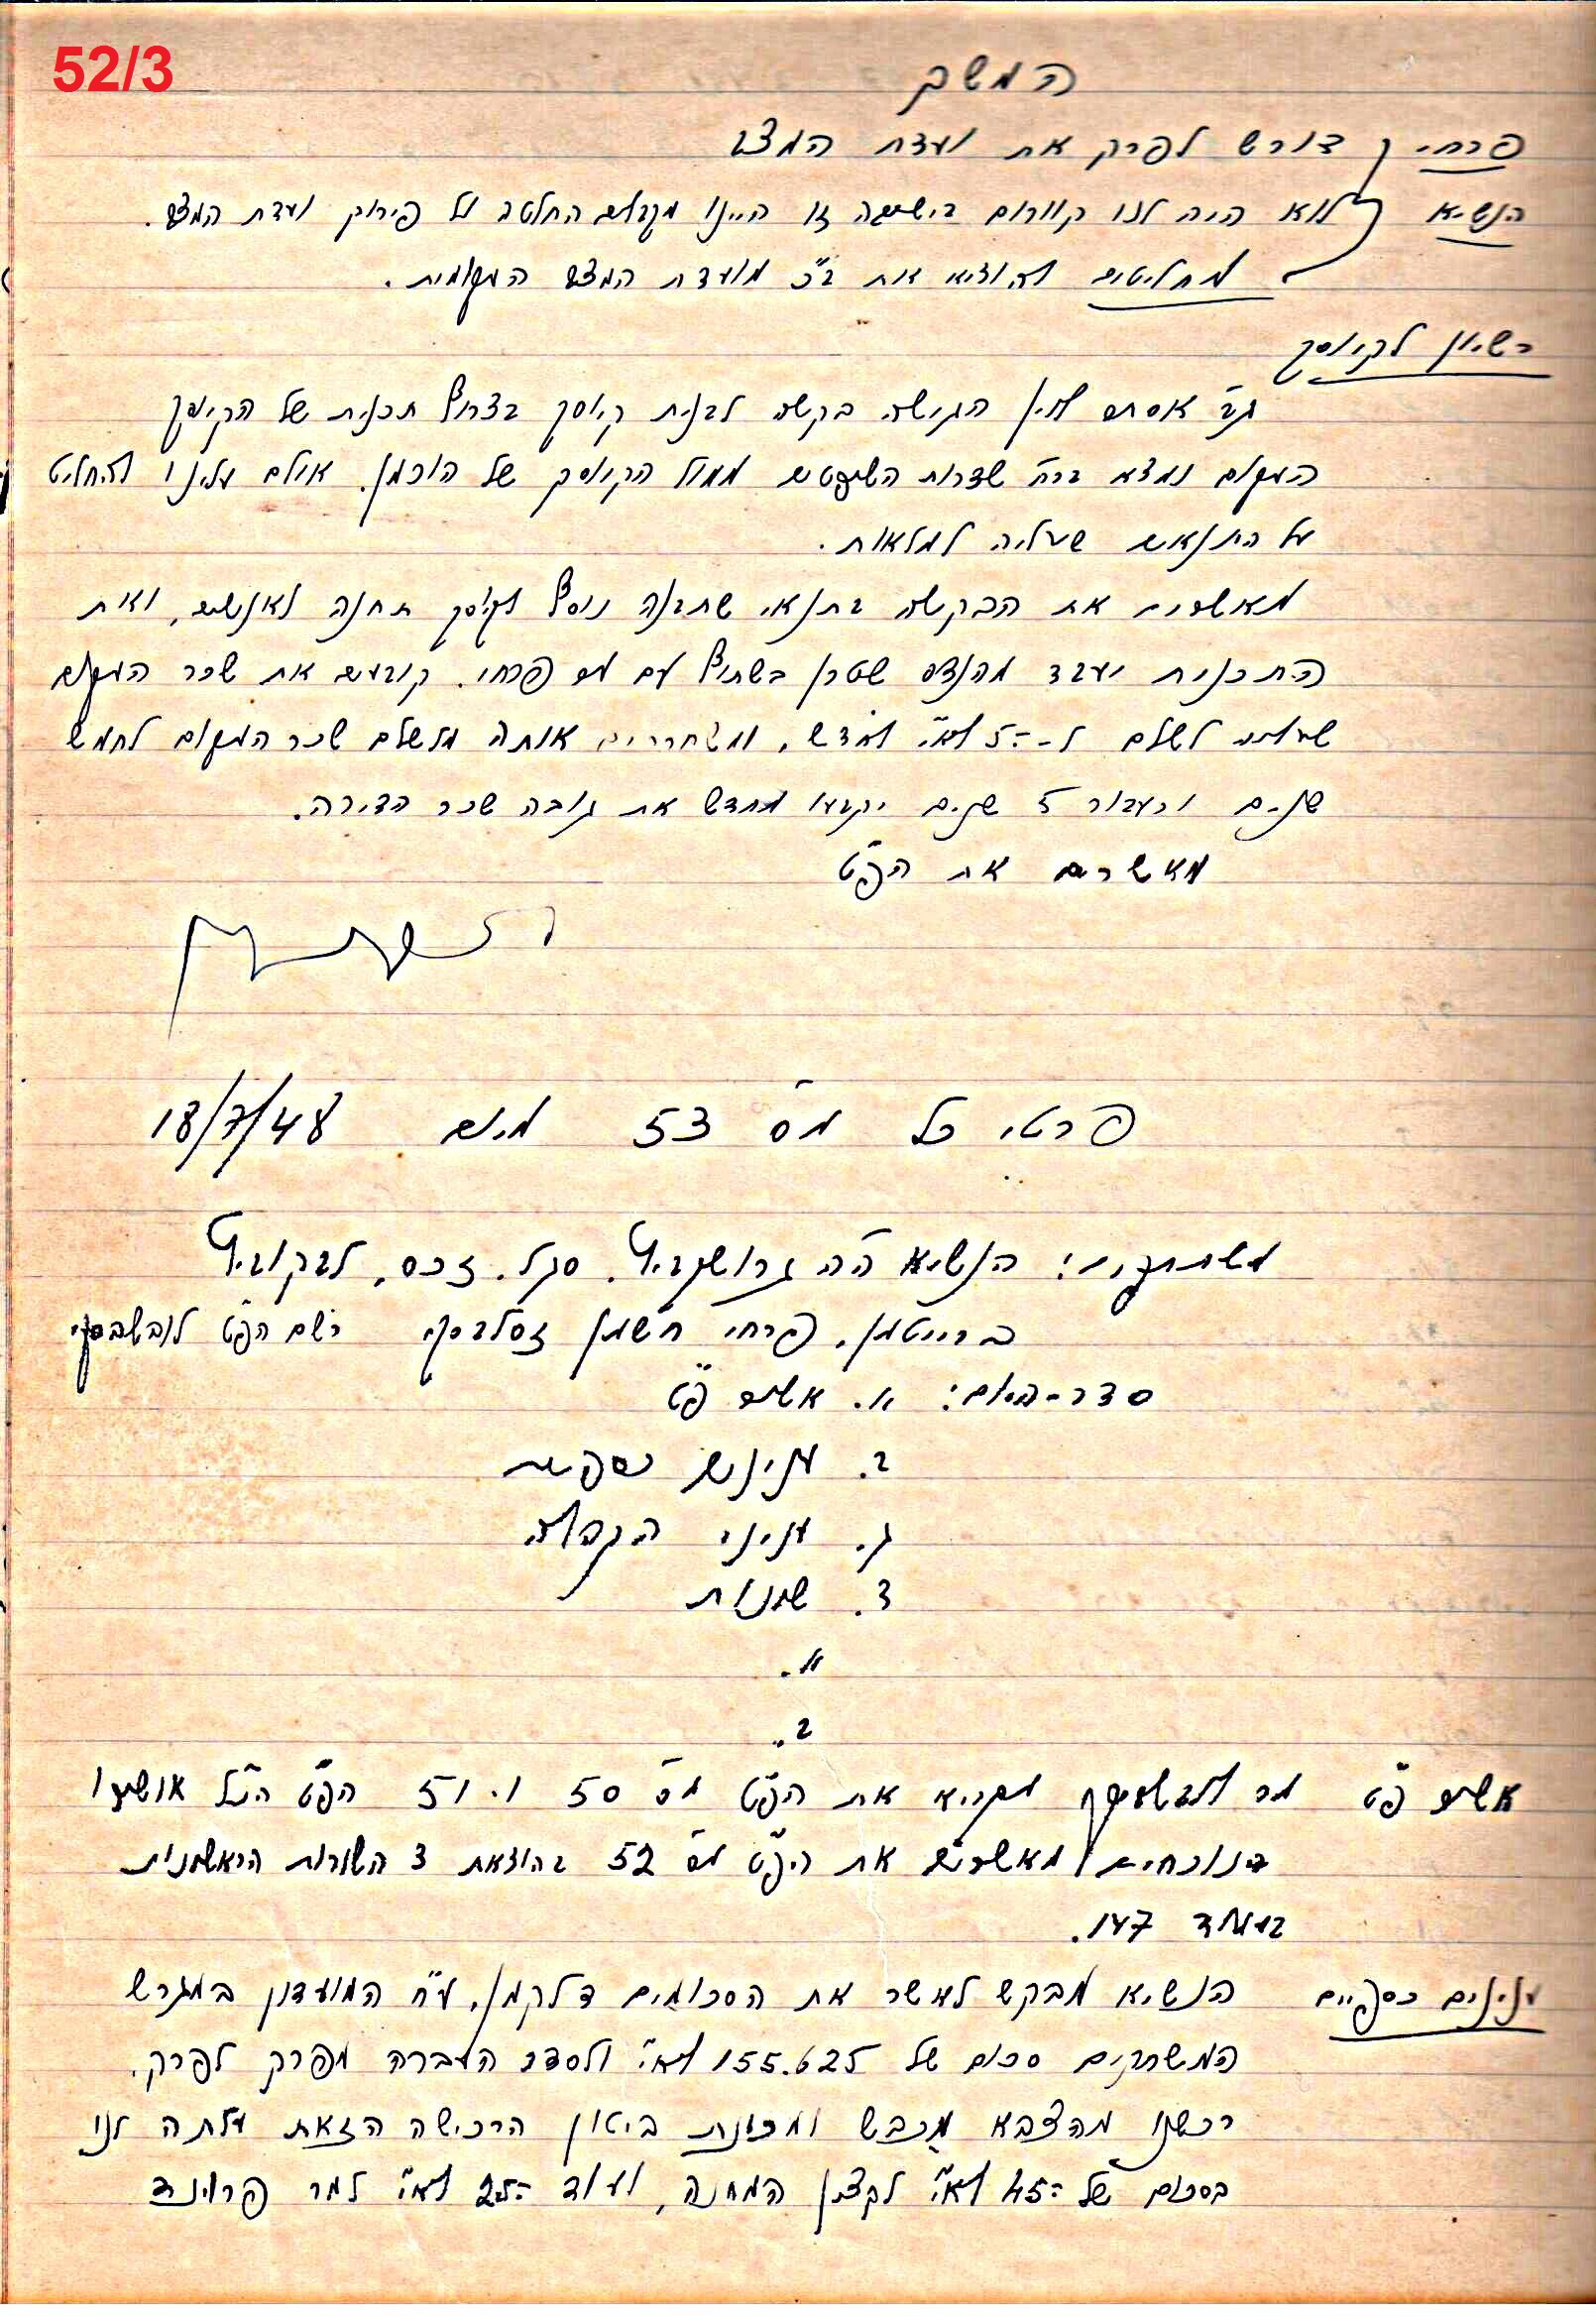 52/3
המשך
פרחי דורש לפרק את ועדת המצב
הנשיא לוא היה לנו קוורום בישיבה זו היינו מקבלים החלטה על פירוק ועדת המצב.
מחליטים להוציא את ב"כ מועדת המצב המקומית.
רשיון לקיוסק
גב' אסתר הגישה בקשה לבנית קיוסק בצרוף תכנית של הקיוסק
המקום נמצא ברח' שדרות השופטים ממול הקיוסק של הוכמן. אולם עלינו להחליט
על התנאים שעליה למלאות.
מאשרים את הבקשה בתנאי שתבנה נוסף לקיוסק תחנה לאנשים, ואת
התכנית יעבד מהנדס שטרן בשתוף עם מר פרחי. קובעים את שכר המקום
שעליה לשלם ל-5.- לא"י לחדש, ומשחררים אותה מלשלם שכר המקום לחמש
שנים וכעבור 5 שנים יקבעו מחדש את גובה שכר הדירה.
מאשרים את הפ"ט
פרטי כל מס' 53 מיום 18/7/48
משתתפים: הנשיא ה"ה גרושקביץ. סגל. זכס. לבקוביץ
ברייטמן. פרחי חשמן זסלבסקי רשם הפ"ט לובשבסקי
סדר-היום: א. אשור פ"ט
ב. ענינים כספיים
ג. עניני הקהלה
ד. שונות
א.
ב.
אשור פ"ט מר לובשבסקי מקריא את הפ"ט מס' 50 ו. 51 הפ"ט הנ"ל אושרו
הנוכחים מאשרים את הפ"ט מס' 52 בהוצאת 3 השורות הראשונות
בעמוד 147.
ענינים כספיים הנשיא מבקש לאשר את הסכומים דלקמן. ע"ח המועדון במגרש
המשחקים סכום של 155.625 לא"י ולסדר העברה מפרק לפרק.
רכשנו מהצבא מכבש ומכונת ביטון הרכישה הזאת עלתה לנו
בסכום של 45.- לא"י לקצין המחנה, ועוד 25.- לא"י למר פרוינד